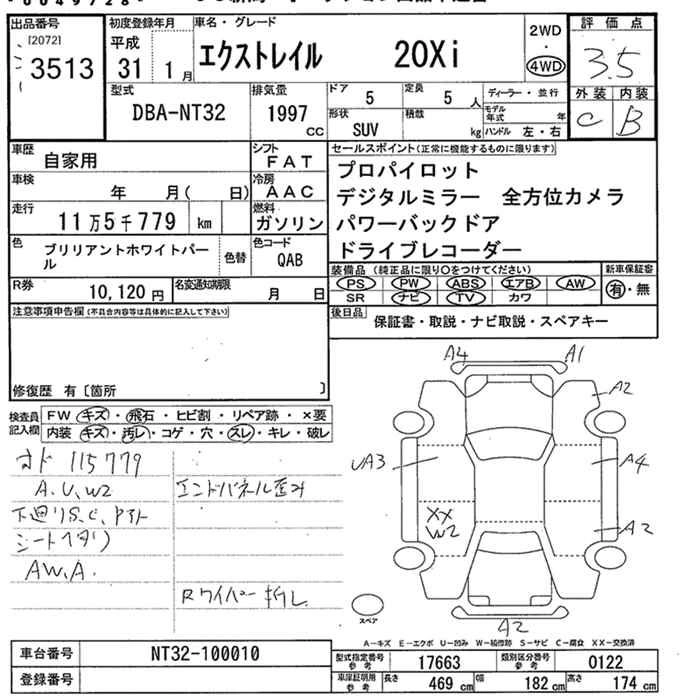 出品番号
[2072]
3513
初度登録年月
平成
31 1月
車名・グレード
エクストレイル 20Xi
2WD
・
4WD
評価点
3.5
外装 内装
C B
型式
DBA-NT32
排気量
1997 cc
ドア
5
定員
5 人
形状
SUV
積載
kg
ディーラー・並行
モデル年式 年
ハンドル 左・右
車歴
自家用
シフト
FAT
車検
年 月( 日)
冷房
AAC
走行
11万5千779 km
燃料
ガソリン
色
ブリリアントホワイトパール
色替
色コード
QAB
セールスポイント(正常に機能するものに限ります)
プロパイロット
デジタルミラー 全方位カメラ
パワーバックドア
ドライブレコーダー
装備品(純正品に限り○をつけてください)
PS PW ABS エアB AW
SR ナビ TV カワ
新車保証書
有・無
R券
10,120円
名変通知期限
月 日
後日品
保証書・取説・ナビ取説・スペアキー
注意事項申告欄(不具合内容等は具体的に記入して下さい)
修復歴 有〔箇所 〕
検査員記入欄
FW キズ・飛石・ヒビ割・リペア跡・×要
内装 キズ・汚レ・コゲ・穴・スレ・キレ・破レ
オド 115779
A.U.W2
下廻りS.C,Pアト
シートヘタリ
AW.A.
エンドパネル歪み
Rワイパー折レ
A4 A1
A2
UA3 A4
XX
W2
A2
スペア
A2
A-キズ E-エクボ U-凹み W-補修跡 S-サビ C-腐食 XX-交換済
車台番号
NT32-100010
登録番号
型式指定番号 参考
17663
類別区分番号 参考
0122
車庫証明用 参考
長さ 469 cm
幅 182 cm
高さ 174 cm